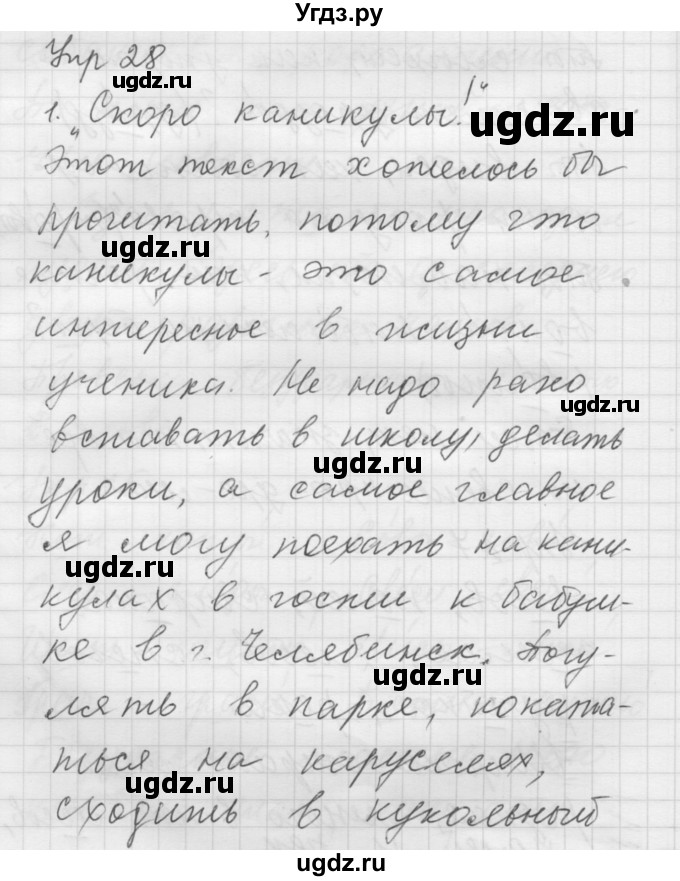 Угдз.ру
Упр 28
1. „Скоро каникулы!"
ugdz.ru
Этот текст хотелось бы
прочитать, потому что
ugdz.ru
каникулы - это самое
интересное в жизни
ученика. Не надо рано
ugdz.ru
вставать в школу, делать
ugdz.ru
уроки, а самое главное
я могу поехать на кани-
ugdz.ru
кулах в гости к бабуш-
ке в г. Челябинск. Погу-
ugdz.ru
лять в парке, поката-
ться на каруселях,
ugdz.ru
сходить в кукольный
ugdz.ru